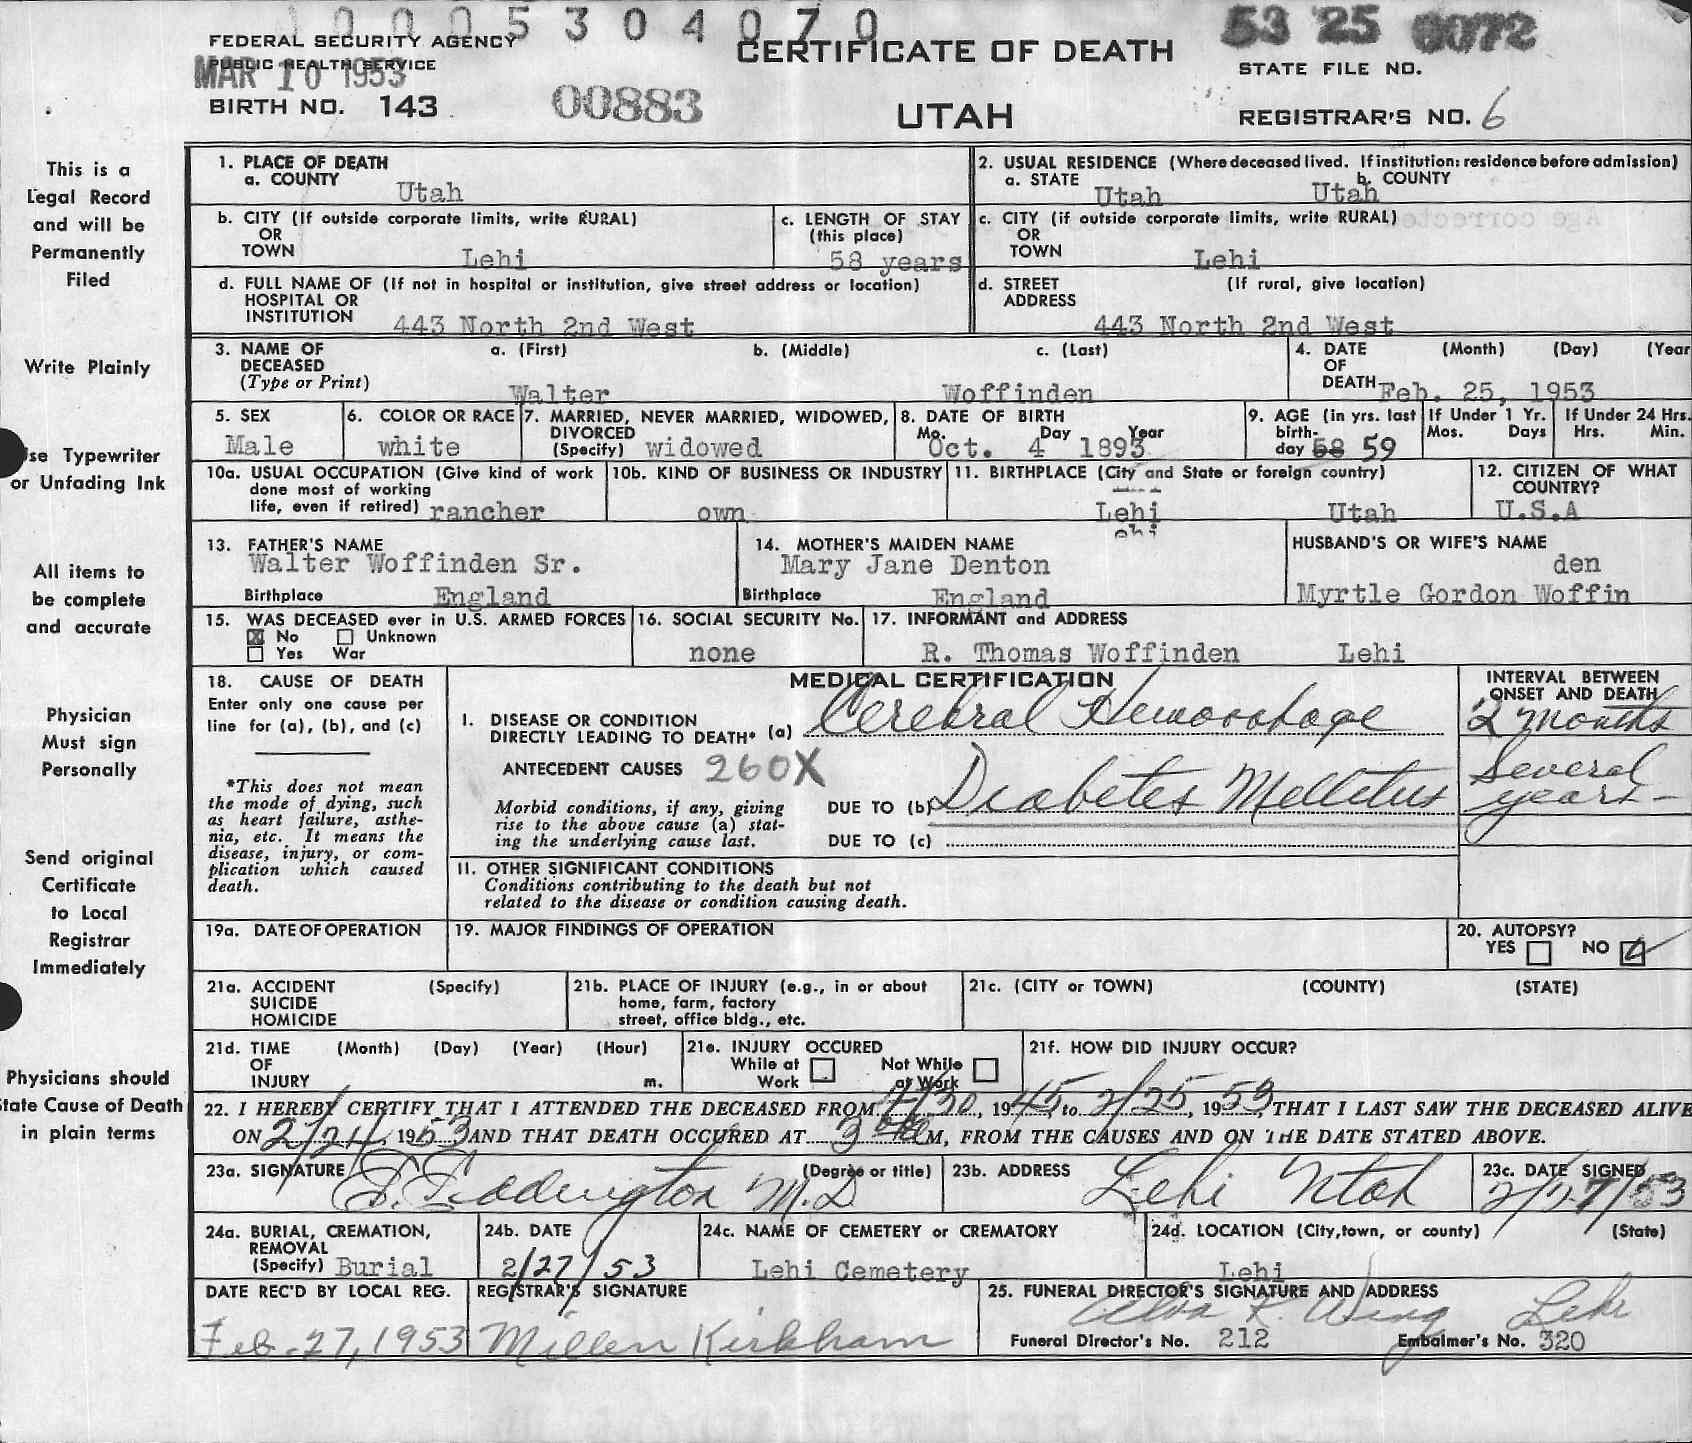 0005304070
53 25 0072
FEDERAL SECURITY AGENCY
PUBLIC HEALTH SERVICE
MAR 10 1953
CERTIFICATE OF DEATH
STATE FILE NO.
BIRTH NO. 143
00883
UTAH
REGISTRAR'S NO. 6
This is a
Legal Record
and will be
Permanently
Filed
Write Plainly
se Typewriter
or Unfading Ink
All items to
be complete
and accurate
Physician
Must sign
Personally
Send original
Certificate
to Local
Registrar
Immediately
Physicians should
tate Cause of Death
in plain terms
1. PLACE OF DEATH
a. COUNTY
Utah
2. USUAL RESIDENCE (Where deceased lived. If institution: residence before admission)
a. STATE Utah b. COUNTY Utah
b. CITY (If outside corporate limits, write RURAL)
OR
TOWN Lehi
c. LENGTH OF STAY
(this place)
58 years
c. CITY (if outside corporate limits, write RURAL)
OR
TOWN Lehi
d. FULL NAME OF (If not in hospital or institution, give street address or location)
HOSPITAL OR
INSTITUTION 443 North 2nd West
d. STREET (If rural, give location)
ADDRESS
443 North 2nd West
3. NAME OF DECEASED
(Type or Print)
a. (First) b. (Middle) c. (Last)
Walter Woffinden
4. DATE (Month) (Day) (Year
OF
DEATH Feb. 25, 1953
5. SEX
Male
6. COLOR OR RACE
white
7. MARRIED, NEVER MARRIED, WIDOWED,
DIVORCED
(Specify) widowed
8. DATE OF BIRTH
Mo. Day Year
Oct. 4 1893
9. AGE (in yrs. last
birth-
day 58 59
If Under 1 Yr.
Mos. Days
If Under 24 Hrs.
Hrs. Min.
10a. USUAL OCCUPATION (Give kind of work
done most of working
life, even if retired) rancher
10b. KIND OF BUSINESS OR INDUSTRY
own
11. BIRTHPLACE (City and State or foreign country)
Lehi Utah
12. CITIZEN OF WHAT
COUNTRY?
U.S.A
13. FATHER'S NAME
Walter Woffinden Sr.
Birthplace England
14. MOTHER'S MAIDEN NAME
Mary Jane Denton
Birthplace England
HUSBAND'S OR WIFE'S NAME
den
Myrtle Gordon Woffin
15. WAS DECEASED ever in U.S. ARMED FORCES
No Unknown
Yes War
16. SOCIAL SECURITY No.
none
17. INFORMANT and ADDRESS
R. Thomas Woffinden Lehi
18. CAUSE OF DEATH
Enter only one cause per
line for (a), (b), and (c)
*This does not mean
the mode of dying, such
as heart failure, asthe-
nia, etc. It means the
disease, injury, or com-
plication which caused
death.
MEDICAL CERTIFICATION
INTERVAL BETWEEN
ONSET AND DEATH
I. DISEASE OR CONDITION
DIRECTLY LEADING TO DEATH* (a) Cerebral Hemorrhage
2 months
ANTECEDENT CAUSES 260X
Morbid conditions, if any, giving
rise to the above cause (a) stat-
ing the underlying cause last.
DUE TO (b) Diabetes Mellitus
Several
years-
DUE TO (c)
II. OTHER SIGNIFICANT CONDITIONS
Conditions contributing to the death but not
related to the disease or condition causing death.
19a. DATE OF OPERATION
19. MAJOR FINDINGS OF OPERATION
20. AUTOPSY?
YES NO
21a. ACCIDENT (Specify)
SUICIDE
HOMICIDE
21b. PLACE OF INJURY (e.g., in or about
home, farm, factory
street, office bldg., etc.
21c. (CITY or TOWN) (COUNTY) (STATE)
21d. TIME (Month) (Day) (Year) (Hour)
OF
INJURY m.
21e. INJURY OCCURED
While at Work
Not While at Work
21f. HOW DID INJURY OCCUR?
22. I HEREBY CERTIFY THAT I ATTENDED THE DECEASED FROM , 1945, to 2/25, 1953, THAT I LAST SAW THE DECEASED ALIVE
ON 2/24, 1953 AND THAT DEATH OCCURED AT 3 M, FROM THE CAUSES AND ON THE DATE STATED ABOVE.
23a. SIGNATURE (Degree or title)
Eddington M.D
23b. ADDRESS
Lehi Utah
23c. DATE SIGNED
2/27/53
24a. BURIAL, CREMATION,
REMOVAL
(Specify) Burial
24b. DATE
2/27/53
24c. NAME OF CEMETERY or CREMATORY
Lehi Cemetery
24d. LOCATION (City, town, or county) (State)
Lehi
DATE REC'D BY LOCAL REG.
Feb. 27, 1953
REGISTRAR'S SIGNATURE
Millen Kirkham
25. FUNERAL DIRECTOR'S SIGNATURE AND ADDRESS
Wing Lehi
Funeral Director's No. 212
Embalmer's No. 320